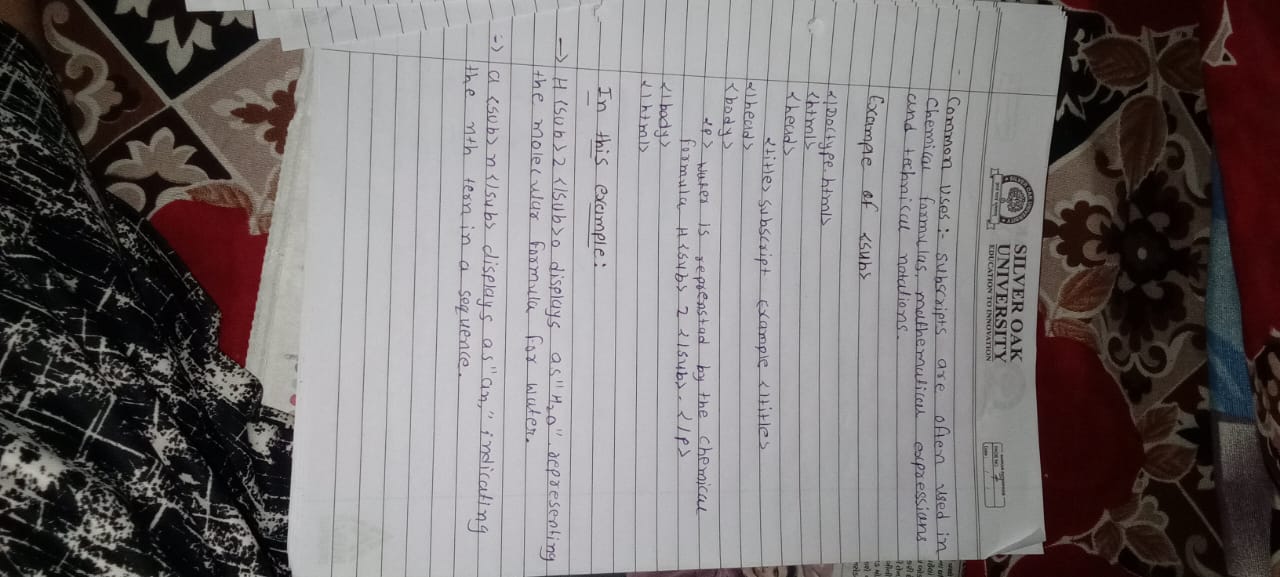 SILVER OAK
UNIVERSITY
EDUCATION TO INNOVATION
PAGE NO. 7
Common Uses :- subscripts are often used in
chemical formulas, mathematical expressions
and technical notations.
Example of <sub>
<!Doctype html>
<html>
<head>
<title> subscript Example </title>
</head>
<body>
<p> water is reprenstad by the chemical
formula H <sub> 2 </sub>. </p>
</body>
</html>
In this example :
→ H <sub> 2 </sub> o displays as "H₂o" representing
the molecular formula for water.
→ a <sub> n </sub> displays as "an," indicating
the nth term in a sequence.